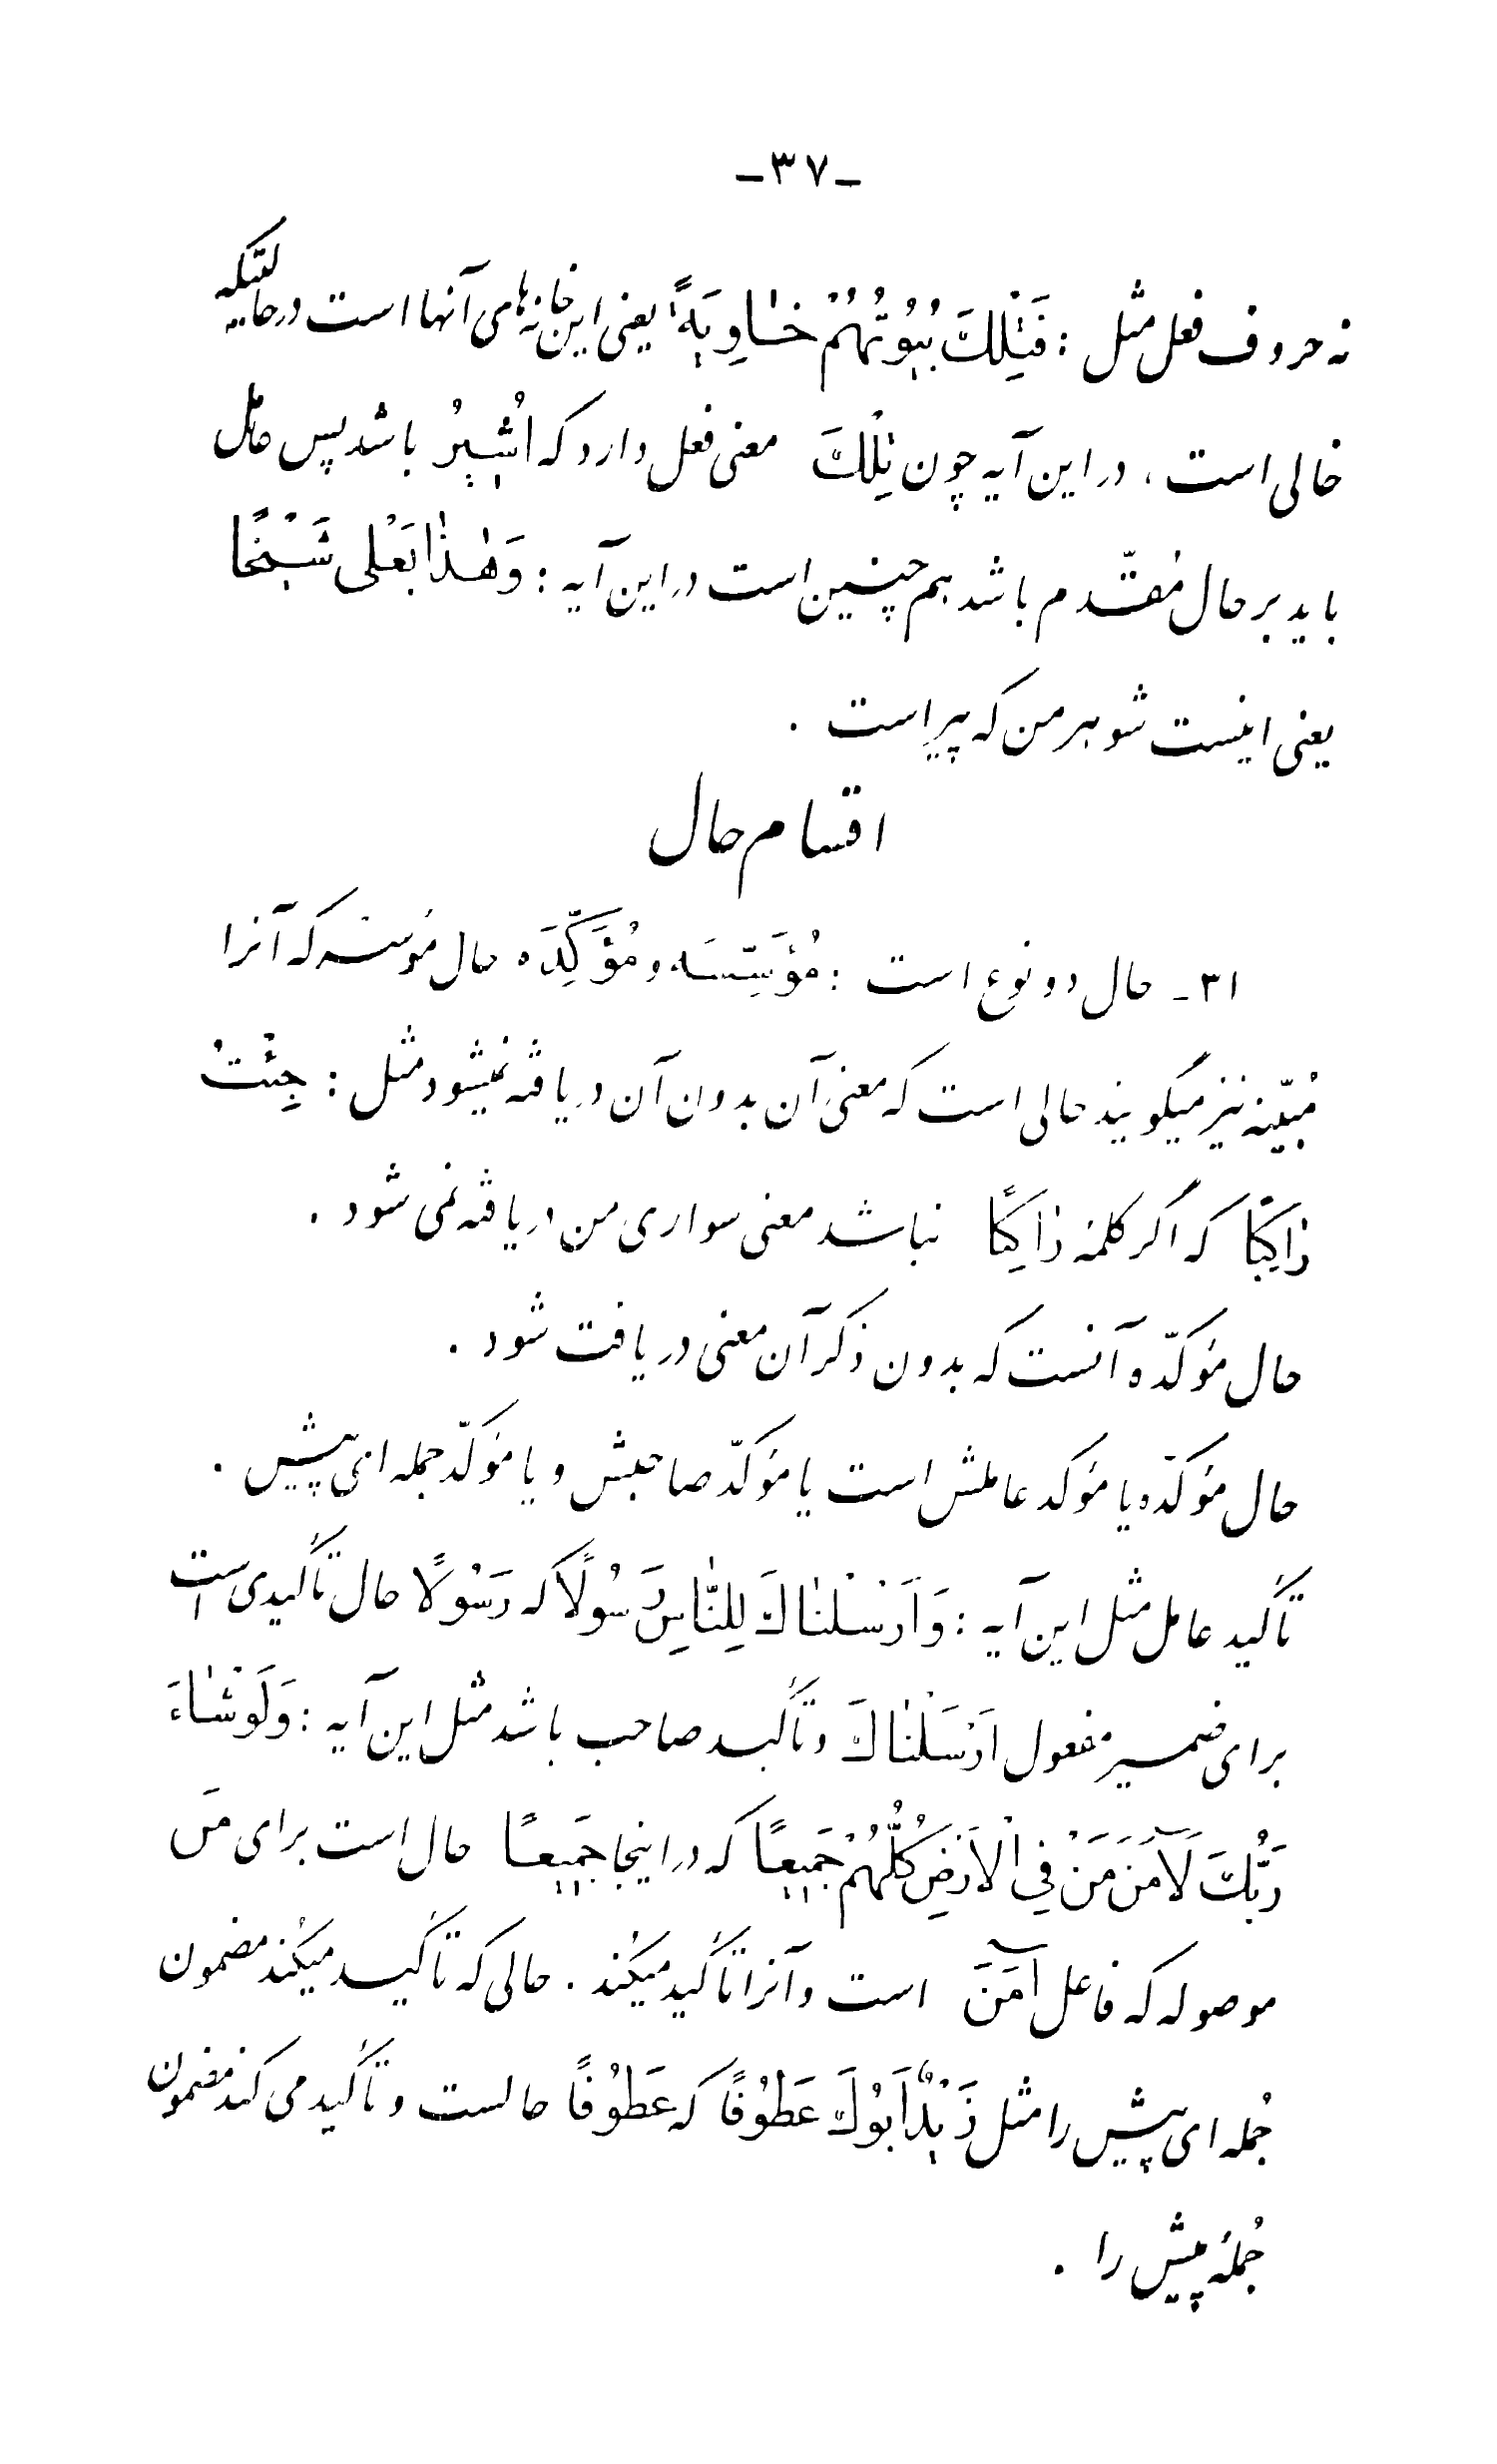 -۳۷-
نه حروف فعل مثل : فَتِلْكَ بُيُوتُهُمْ خٰاوِيَةً یعنی این خانه‌های آنها است درحالتیکه
خالی است ، در این آیه چون تِلْكَ معنی فعل دارد که اُشیرُ باشد پس عامل
باید بر حال مُقدّم باشد هم چنین است در این آیه : وَهٰذٰا بَعْلی شَیْخًا
یعنی اینست شوهر من که پیر است .
اقسام حال
۳۱- حال دو نوع است : مُؤَسِّسَه و مُؤَكِّدَه حال مؤسسه که آنرا
مُبیّنه نیز میگویند حالی است که معنی آن بدون آن دریافته نمیشود مثل : جِئْتُ
رٰاکِبًا که اگر کلمهٔ رٰاکِبًا نباشد معنی سواری من دریافته نمی شود .
حال مؤکدّه آنست که بدون ذکر آن معنی دریافت شود .
حال مؤکدّه یا مؤکد عاملش است یا مؤکدّ صاحبش و یا مؤکدّ جمله ای پیش .
تأکید عامل مثل این آیه : وَاَرْسَلْنٰاكَ لِلنّٰاسِ رَسُولًا که رَسُولًا حال تأکیدی است
برای ضمیر مفعول اَرْسَلْنٰاكَ و تأکید صاحب باشد مثل این آیه : وَلَوْ شٰاءَ
رَبُّكَ لَآمَنَ مَنْ فِي الْاَرْضِ كُلُّهُمْ جَمیعًا که در اینجا جَمیعًا حال است برای مَن
موصوله که فاعل آمَنَ است و آنرا تأکید میکند . حالی که تأکید میکند مضمون
جُمله ای پیش را مثل زَیْدٌ اَبُوكَ عَطُوفًا که عَطُوفًا حالست و تأکید می کند مضمون
جُملهٔ پیش را .